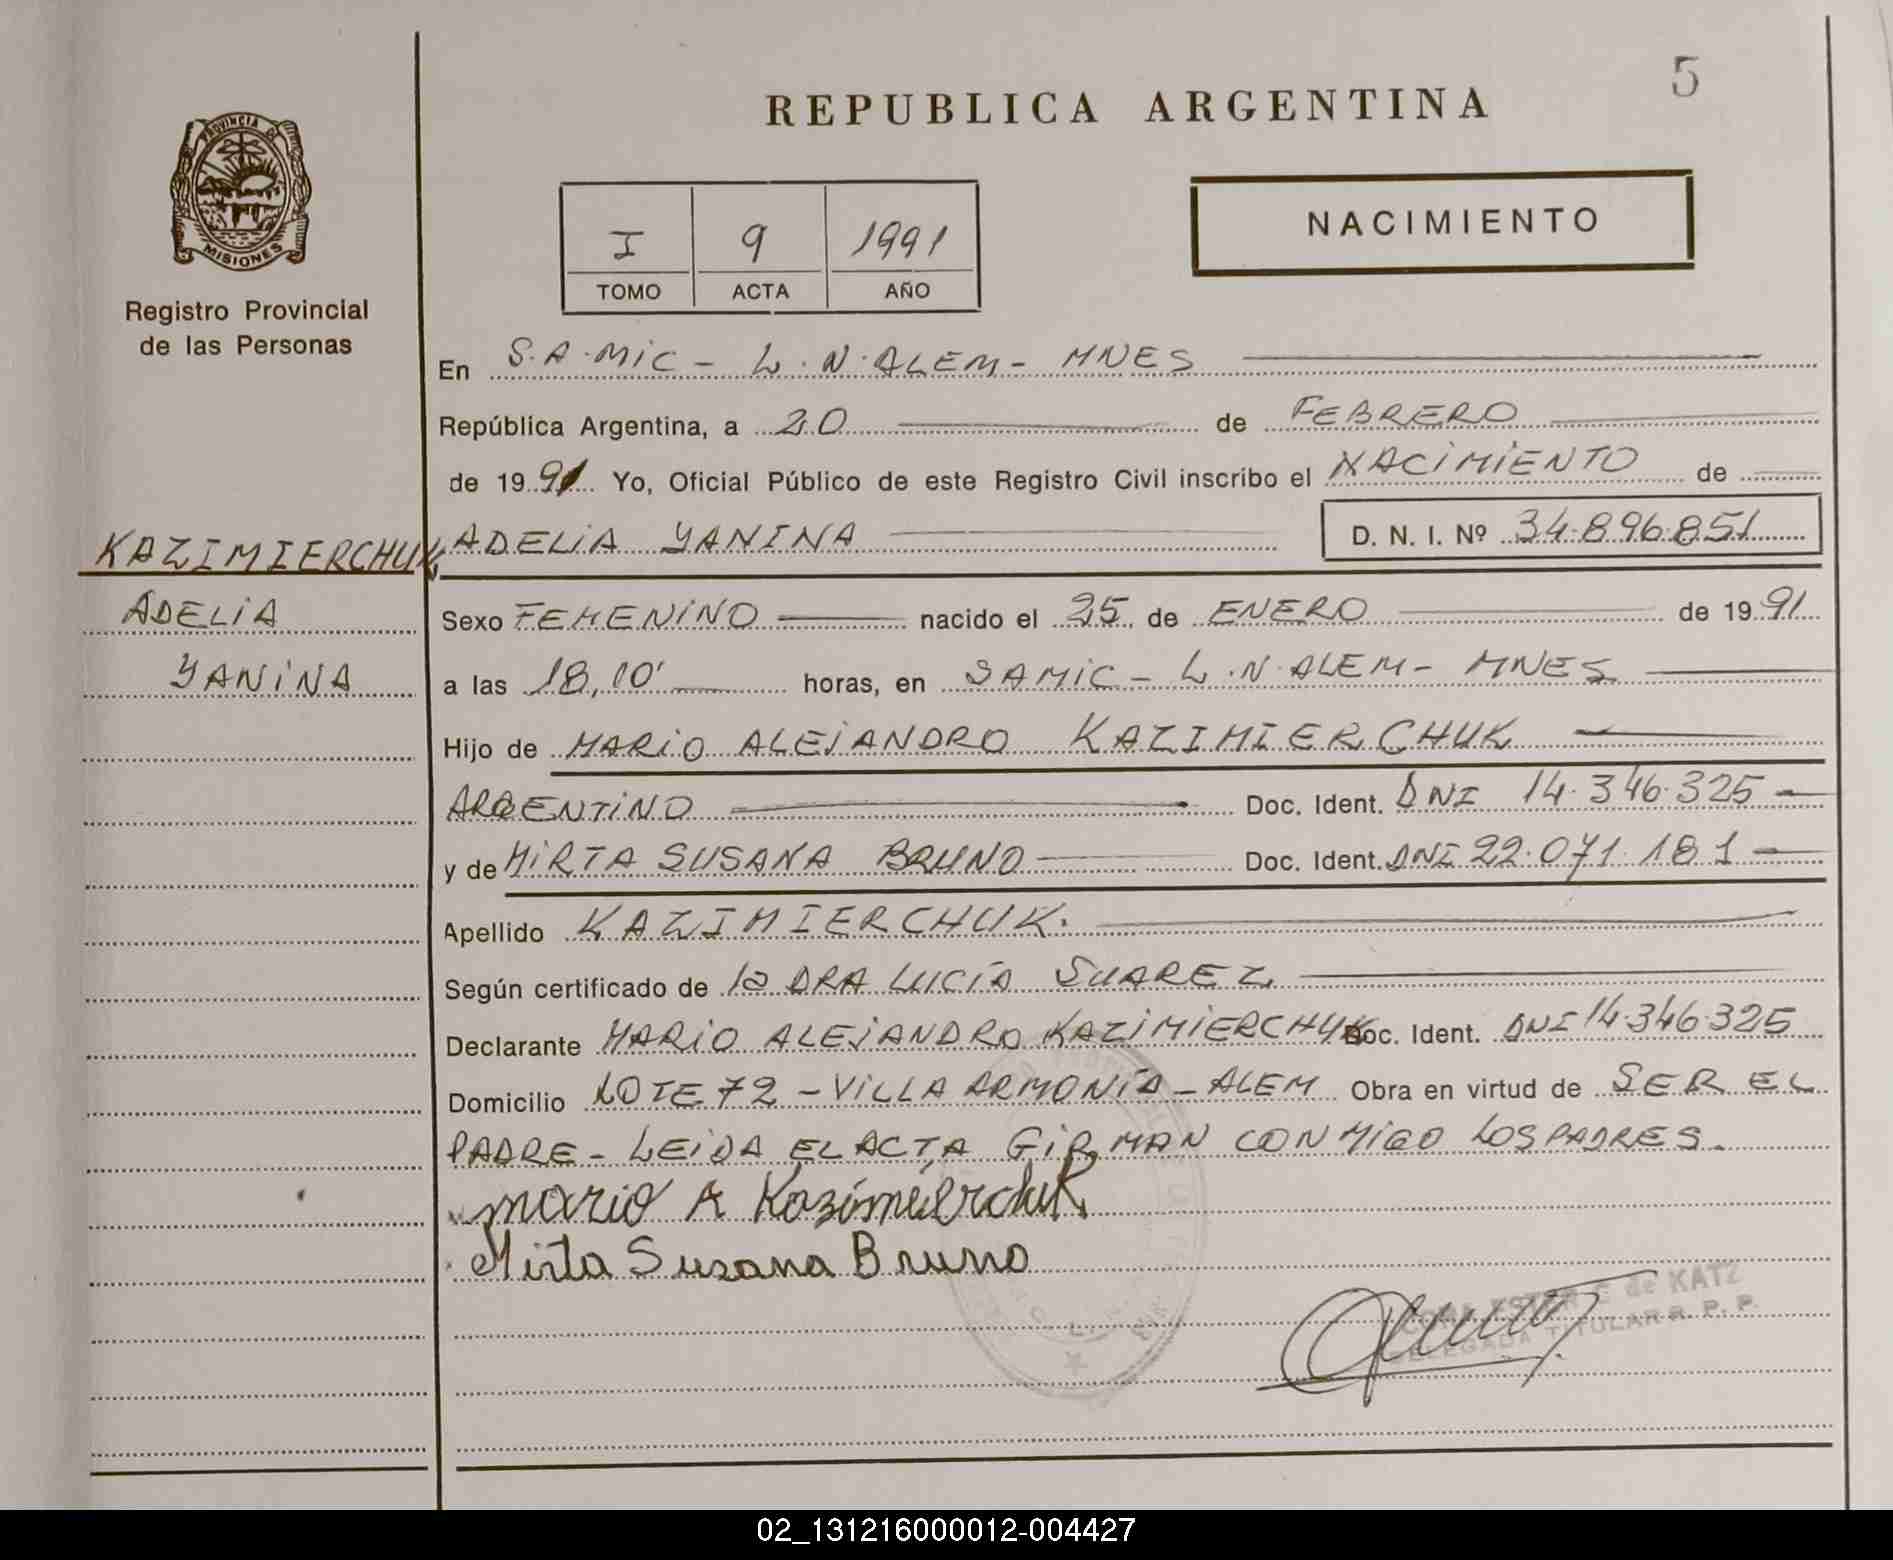 5
REPUBLICA ARGENTINA
PROVINCIA DE
MISIONES
Registro Provincial
de las Personas
I 9 1991
TOMO ACTA AÑO
NACIMIENTO
En S.A.MIC - L.N.ALEM - MNES
República Argentina, a 20 de FEBRERO
de 1991 Yo, Oficial Público de este Registro Civil inscribo el NACIMIENTO de
KAZIMIERCHUK ADELIA YANINA D. N. I. Nº 34.896.851
ADELIA Sexo FEMENINO nacido el 25 de ENERO de 1991
YANINA a las 18,10' horas, en SAMIC - L.N.ALEM - MNES
Hijo de MARIO ALEJANDRO KAZIMIERCHUK
ARGENTINO Doc. Ident. DNI 14.346.325
y de MIRTA SUSANA BRUNO Doc. Ident. DNI 22.071.181
Apellido KAZIMIERCHUK.
Según certificado de la DRA LUCÍA SUAREZ.
Declarante MARIO ALEJANDRO KAZIMIERCHUK Doc. Ident. DNI 14.346.325
Domicilio LOTE 72 - VILLA ARMONÍA - ALEM Obra en virtud de SER EL
PADRE - LEIDA EL ACTA FIRMAN CONMIGO LOS PADRES.
Mario A Kazimierchuk
Mirta Susana Bruno
ESTER de KATZ
DELEGADA TITULAR R. P. P.
02_131216000012-004427